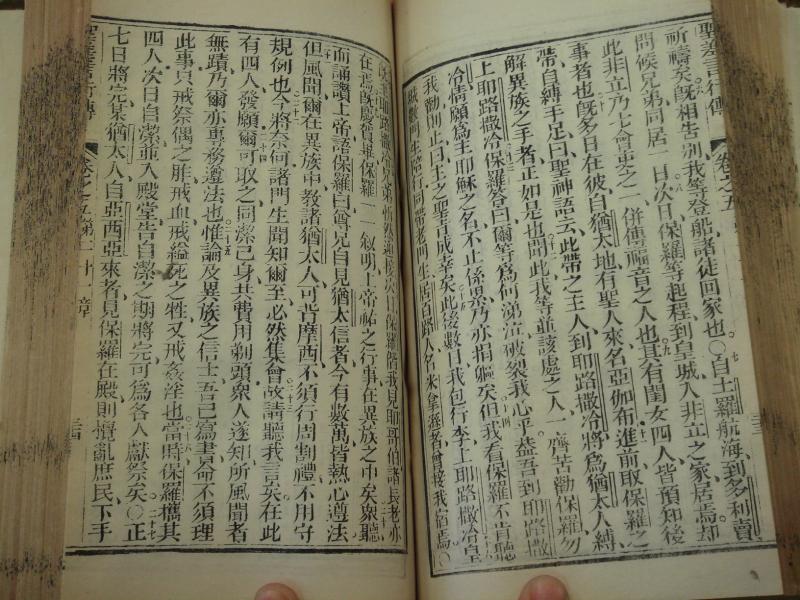 祈禱矣既相告別我等登船諸徒回家也○自土羅航海到多利賣
問候兄弟同居一日次日保羅等起程到皇城入非立之家居焉却
此非立乃七會吏之一併傳福音之人也其有閨女四人皆預知後
事者也既多日在彼自猶太地有聖人來名亞伽布進前取保羅
帶自縛手足曰聖神語云此帶之主人到耶路撒冷將為猶太人縛
解異族之手者正如是也聞此我等並該處之人一齊苦勸保羅勿
上耶路撒冷保羅答曰爾等為何涕泣破裂我心乎蓋吾到耶路撒
冷情願為主耶穌之名不止係累乃亦捐軀矣但我看保羅不肯聽
我勸則止曰主之聖旨成幸矣此後數日我包行李上耶路撒冷皇
城數門生偕行同帶老門生居百路人名 者曾接我宿焉○
耶路撒冷兄弟忻然迎接次日保羅偕我見耶哥伯諸長老亦
在焉既慶賀畢保羅一一敘明上帝祐之行事在異族之中矣眾聽
而誦讚上帝語保羅曰尊兄自見猶太信者今有數萬皆熱心遵法
但風聞爾在異族中教諸猶太人可背摩西不須行周割禮不用守
規例也今將奈何諸門生聞知爾至必然集會故請聽我言矣在此
有四人發願爾可取之同潔己身共費用剃頭眾人遂知所風聞者
無蹟乃爾亦專務遵法也惟論及異族之信士吾已寫書命不須理
此事只戒祭偶之胙戒血戒縊死之牲又戒姦淫也當時保羅攜其
四人次日自潔並入殿堂告自潔之期將完可為各人獻祭矣○正
七日將完某猶太人自亞西亞來者見保羅在殿則攪亂庶民下手